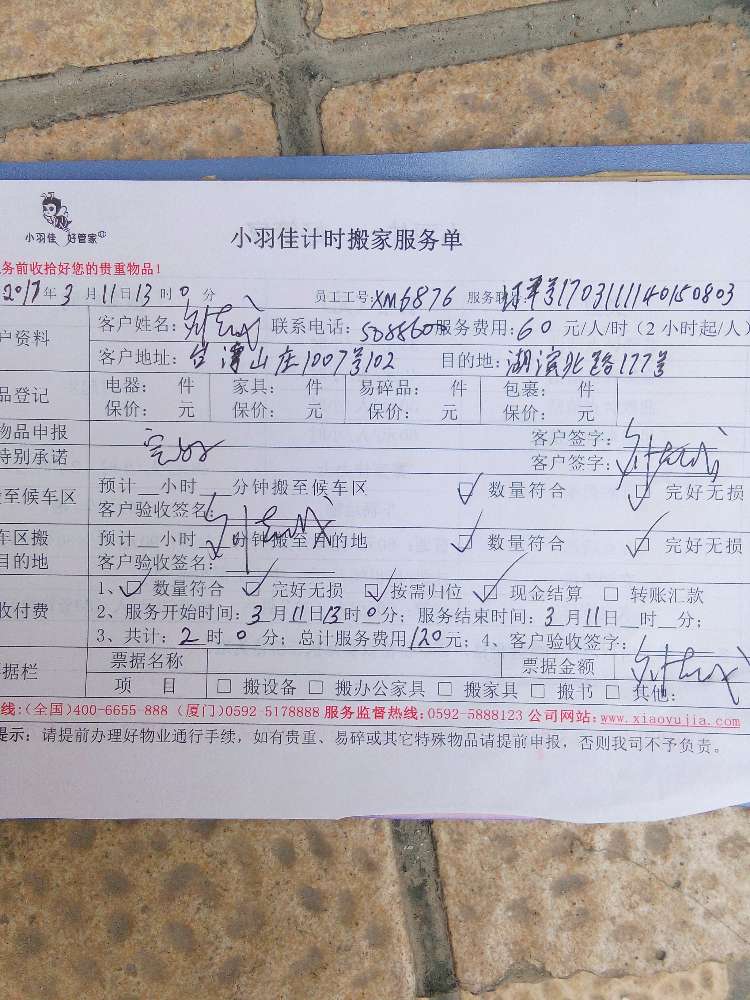 小羽佳 好管家
小羽佳计时搬家服务单
务前收拾好您的贵重物品！
2017年3月11日13时0分 员工工号：XM6876 服务联 订单号1703111140150803
户资料 客户姓名： 联系电话： 服务费用：60元/人/时（2小时起/人）
客户地址： 山庄1007号102 目的地：湖滨北路177号
品登记 电器： 件 家具： 件 易碎品： 件 包裹： 件
保价： 元 保价： 元 保价： 元 保价： 元
物品申报 完好 客户签字：
特别承诺 客户签字：
搬至候车区 预计__小时__分钟搬至候车区 ☑ 数量符合 ☑ 完好无损
客户验收签名：
车区搬 预计__小时__分钟搬至目的地 ☑ 数量符合 ☑ 完好无损
目的地 客户验收签名：
1、☑ 数量符合 ☑ 完好无损 ☑ 按需归位 ☑ 现金结算 □ 转账汇款
收付费 2、服务开始时间：3月11日13时0分；服务结束时间：3月11日__时__分；
3、共计：2时0分；总计服务费用120元；4、客户验收签字：
据栏 票据名称 票据金额
项 目 □ 搬设备 □ 搬办公家具 □ 搬家具 □ 搬书 □ 其他：
线：(全国)400-6655-888 (厦门)0592-5178888 服务监督热线：0592-5888123 公司网站：www.xiaoyujia.com
提示：请提前办理好物业通行手续，如有贵重、易碎或其它特殊物品请提前申报，否则我司不予负责。